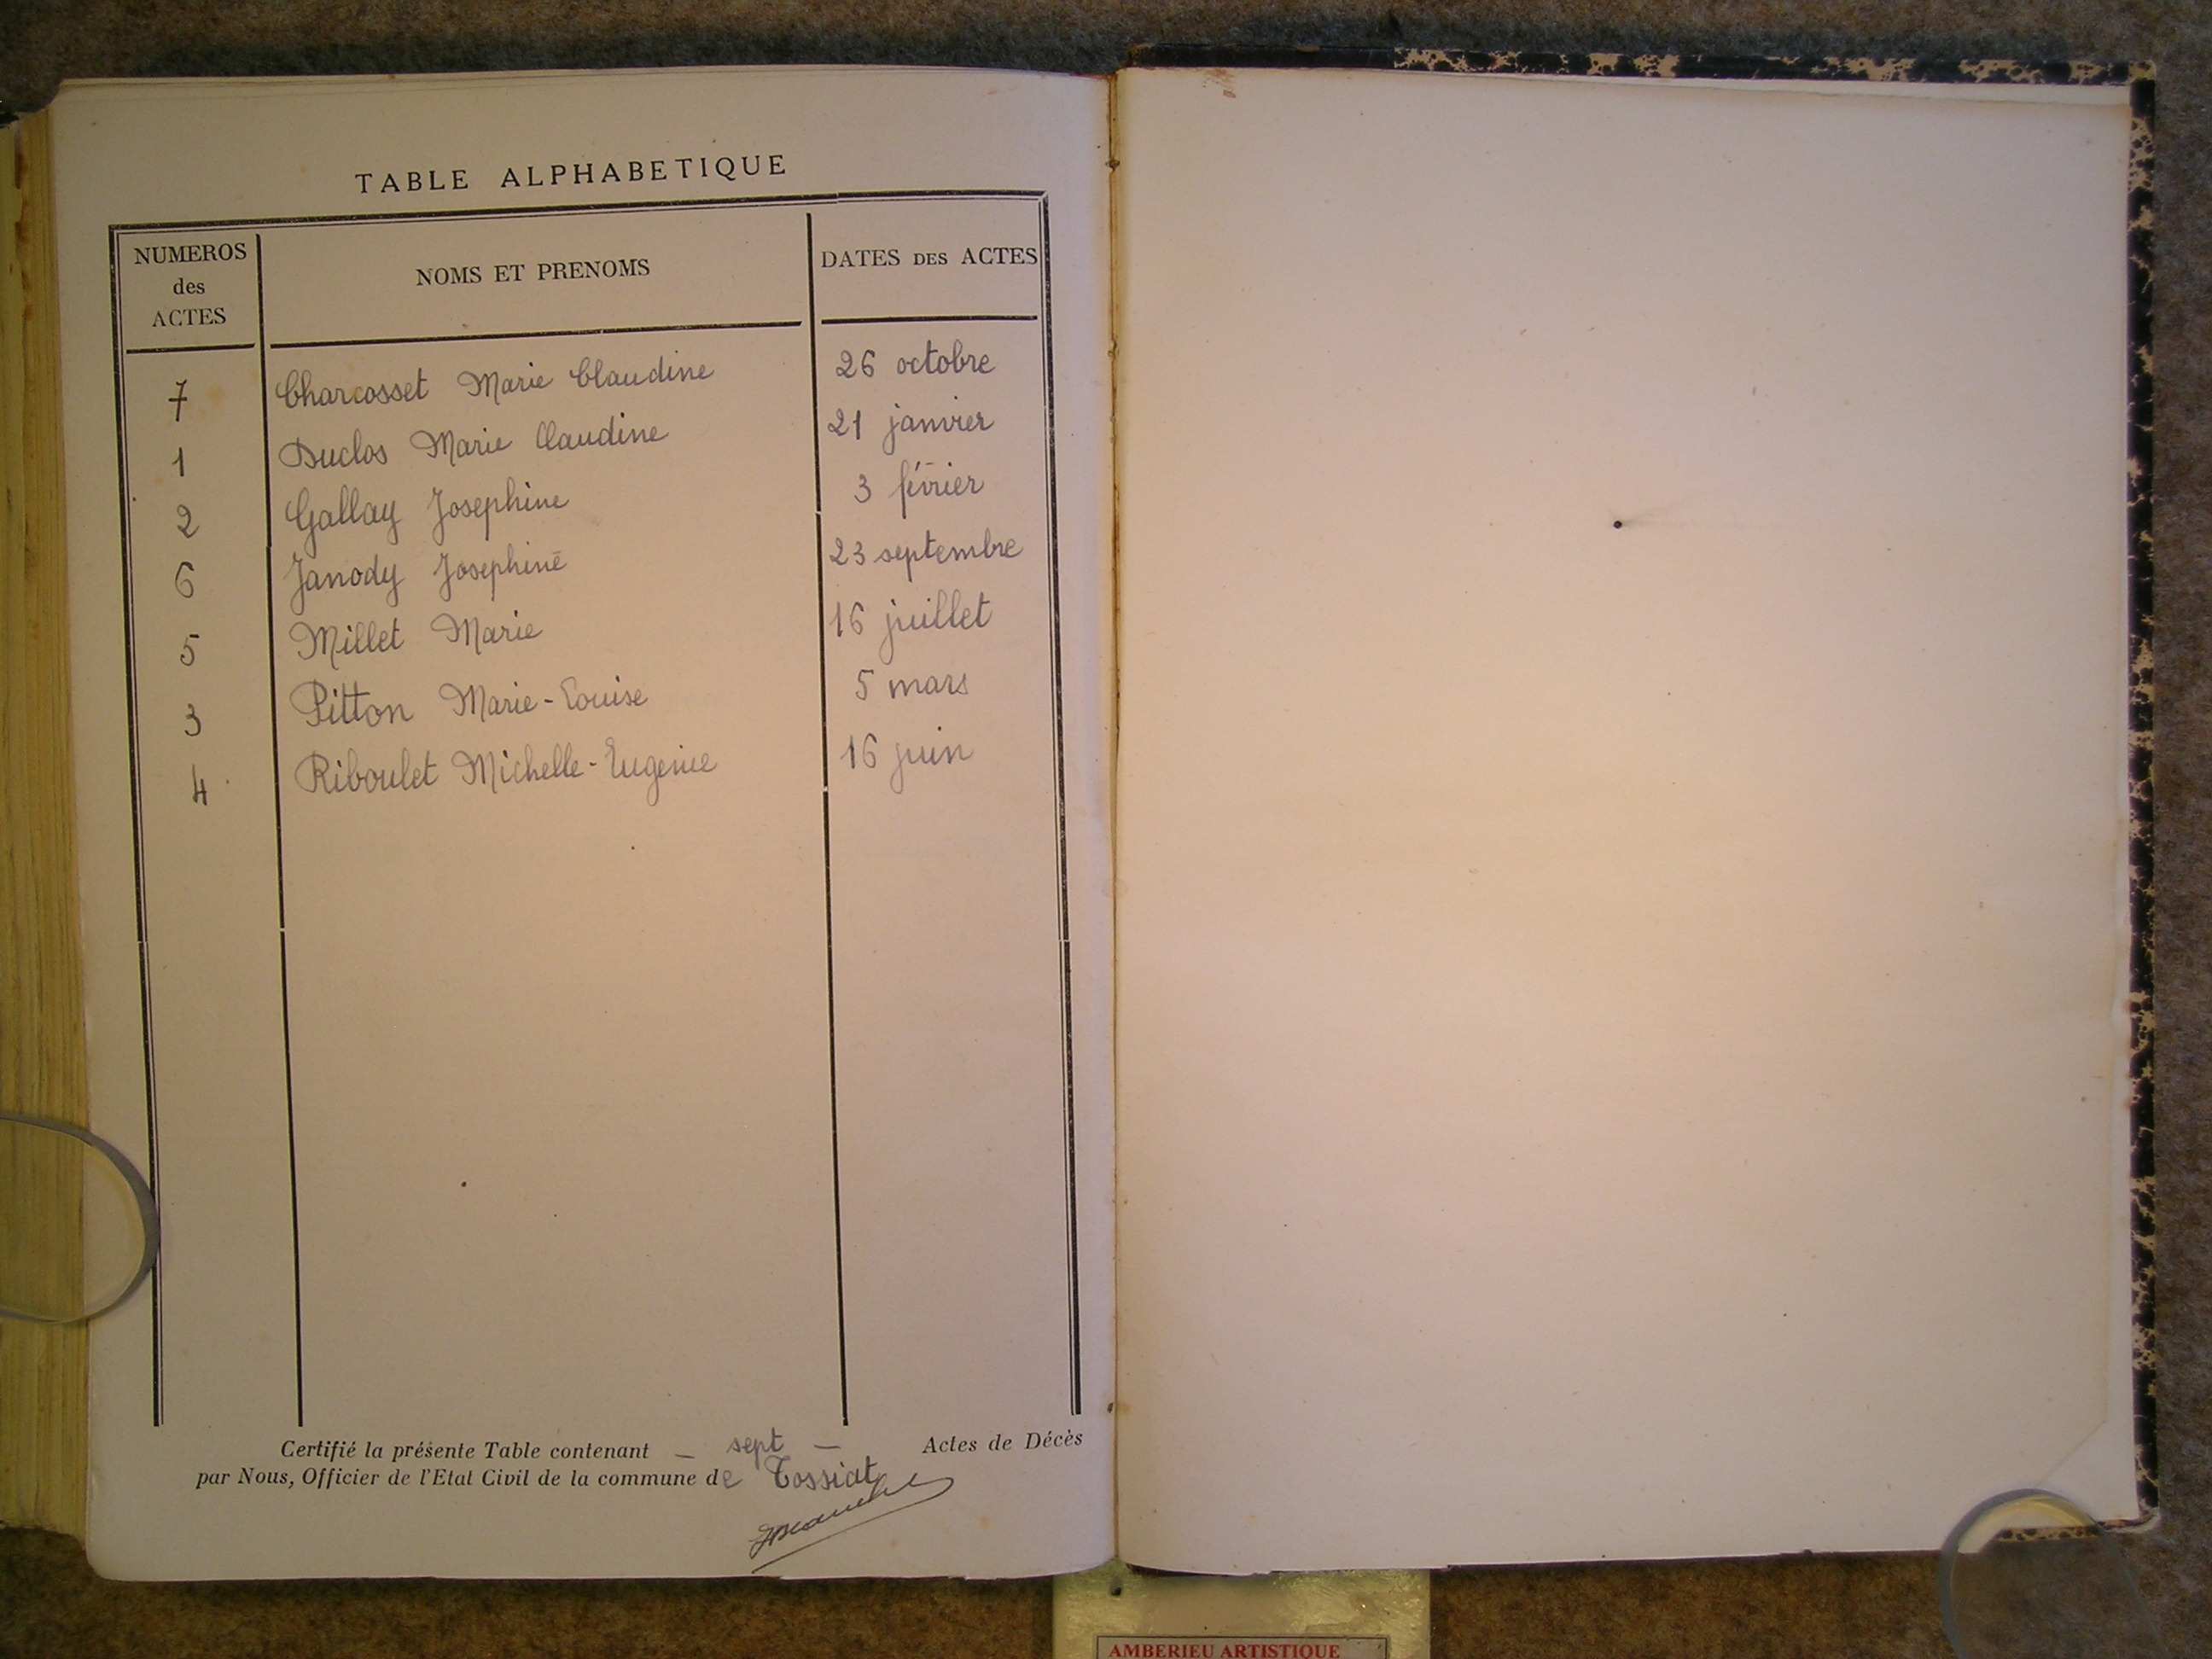 TABLE ALPHABETIQUE
NUMEROS des ACTES NOMS ET PRENOMS DATES DES ACTES
7 Charcosset Marie Claudine 26 octobre
1 Duclos Marie Claudine 21 janvier
2 Gallay Josephine 3 février
6 Janody Josephine 23 septembre
5 Millet Marie 16 juillet
3 Pitton Marie-Louise 5 mars
4 Riboulet Michelle-Eugenie 16 juin
Certifié la présente Table contenant — sept — Actes de Décès
par Nous, Officier de l'Etat Civil de la commune de Tossiat
AMBERIEU ARTISTIQUE